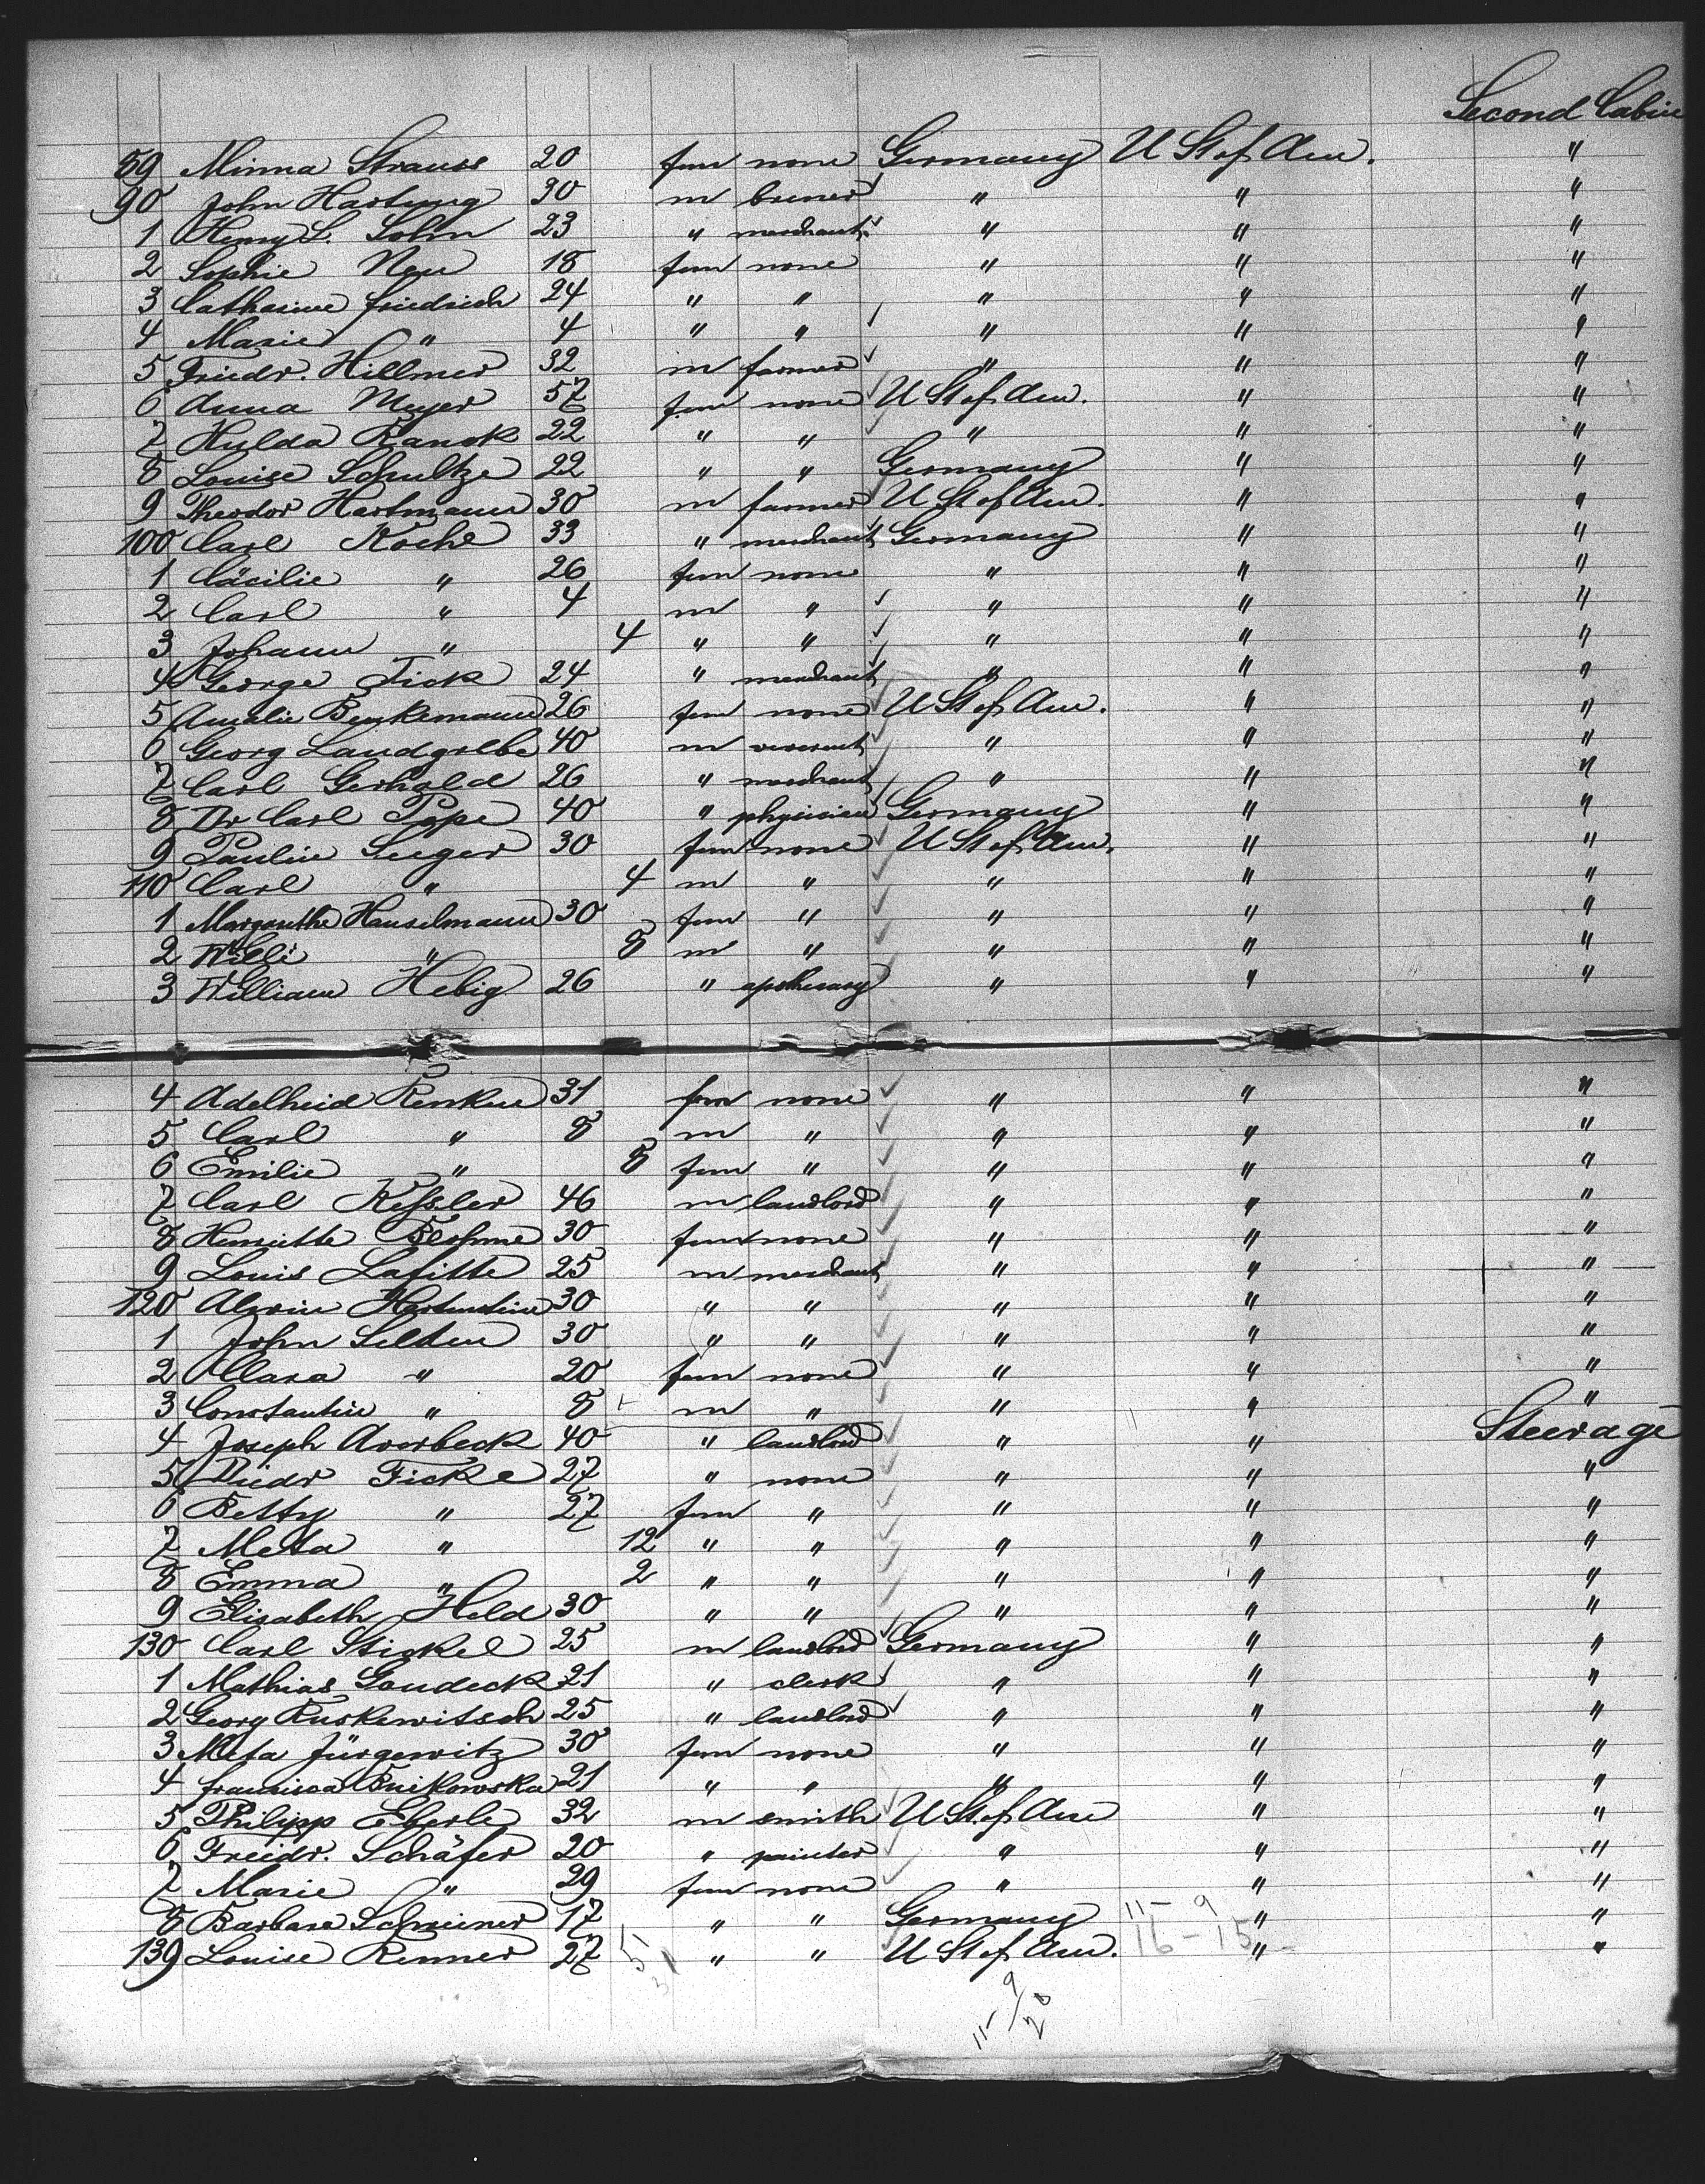 Second Cabin
89 Minna Strauss 20 fem none Germany U St of Am. "
90 John Hartung 30 m " "
1 Henry L. Sohn 23 " merchant " " "
2 Sophie Neu 18 fem none " " "
3 Catharine Friedrich 24 " " " " "
4 Marie " 4 " " " " "
5 Friedr. Hillmer 32 m farmer " " "
6 Anna Meyer 57 fem none U St of Am. " "
7 Hulda Ranok 22 " " " " "
8 Louise Schultze 22 " " Germany " "
9 Theodor Hartmann 30 m farmer U St of Am. " "
100 Carl Koche 33 " merchant Germany " "
1 Cäcilie " 26 fem none " " "
2 Carl " 4 m " " " "
3 Johann " 4 " " " " "
4 George Fick 24 " merchant " " "
5 Amalie Benkemann 26 fem none U St of Am. " "
6 Georg 40 m " " "
7 Carl Gerhold 26 " merchant " " "
8 Dr Carl Pape 40 " physician Germany " "
9 Pauline Seeger 30 fem none U St of Am. " "
110 Carl " 4 m " " " "
1 Margarethe Hanselmann 30 fem " " " "
2 Willi " 8 m " " " "
3 William Hebig 26 " apothecary " " "
4 Adelheid Renken 31 fem none " " "
5 Carl " 8 m " " " "
6 Emilie " 8 fem " " " "
7 Carl Kessler 46 m landlord " " "
8 Henriette Blohme 30 fem none " " "
9 Louis Lafitte 25 m merchant " " "
120 Alwin 30 " " " " "
1 John Selden 30 " " " " "
2 Clara " 20 fem none " " "
3 Constantin " 8 m " " " "
4 Joseph Averbeck 40 " landlord " " Steerage
5 Diedr Ficke 27 " none " " "
6 Betty " 27 fem " " " "
7 Meta " 12 " " " " "
8 Emma " 2 " " " " "
9 Elisabeth Held 30 " " " " "
130 Carl Stickel 25 m landlord Germany " "
1 Mathias Gaudeck 21 " clerk " " "
2 Georg Ruskewitsch 25 " landlord " " "
3 Meta Jürgewitz 30 fem none " " "
4 21 " " " " "
5 Philipp Eberle 32 m smith U St. of Am " "
6 Friedr. Schäfer 20 " painter " " "
7 Marie " 29 fem none " " "
8 Barbara Schreiner 17 " " Germany 11 - 9 " "
139 Louise Renner 27 " " U St of Am. 16 - 15 " "